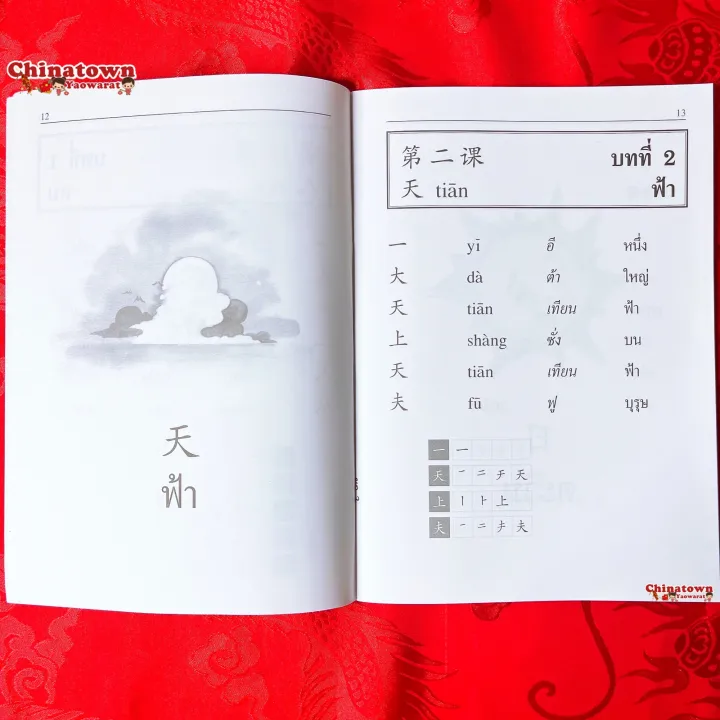 Chinatown
Yaowarat
12
天
ฟ้า
13
第二课 บทที่ 2
天 tiān ฟ้า
一 yī อี หนึ่ง
大 dà ต้า ใหญ่
天 tiān เทียน ฟ้า
上 shàng ซั่ง บน
天 tiān เทียน ฟ้า
夫 fū ฟู บุรุษ
一 一
天 一 二 チ 天
上 丨 卜 上
夫 一 二 キ 夫
Chinatown
Yaowarat